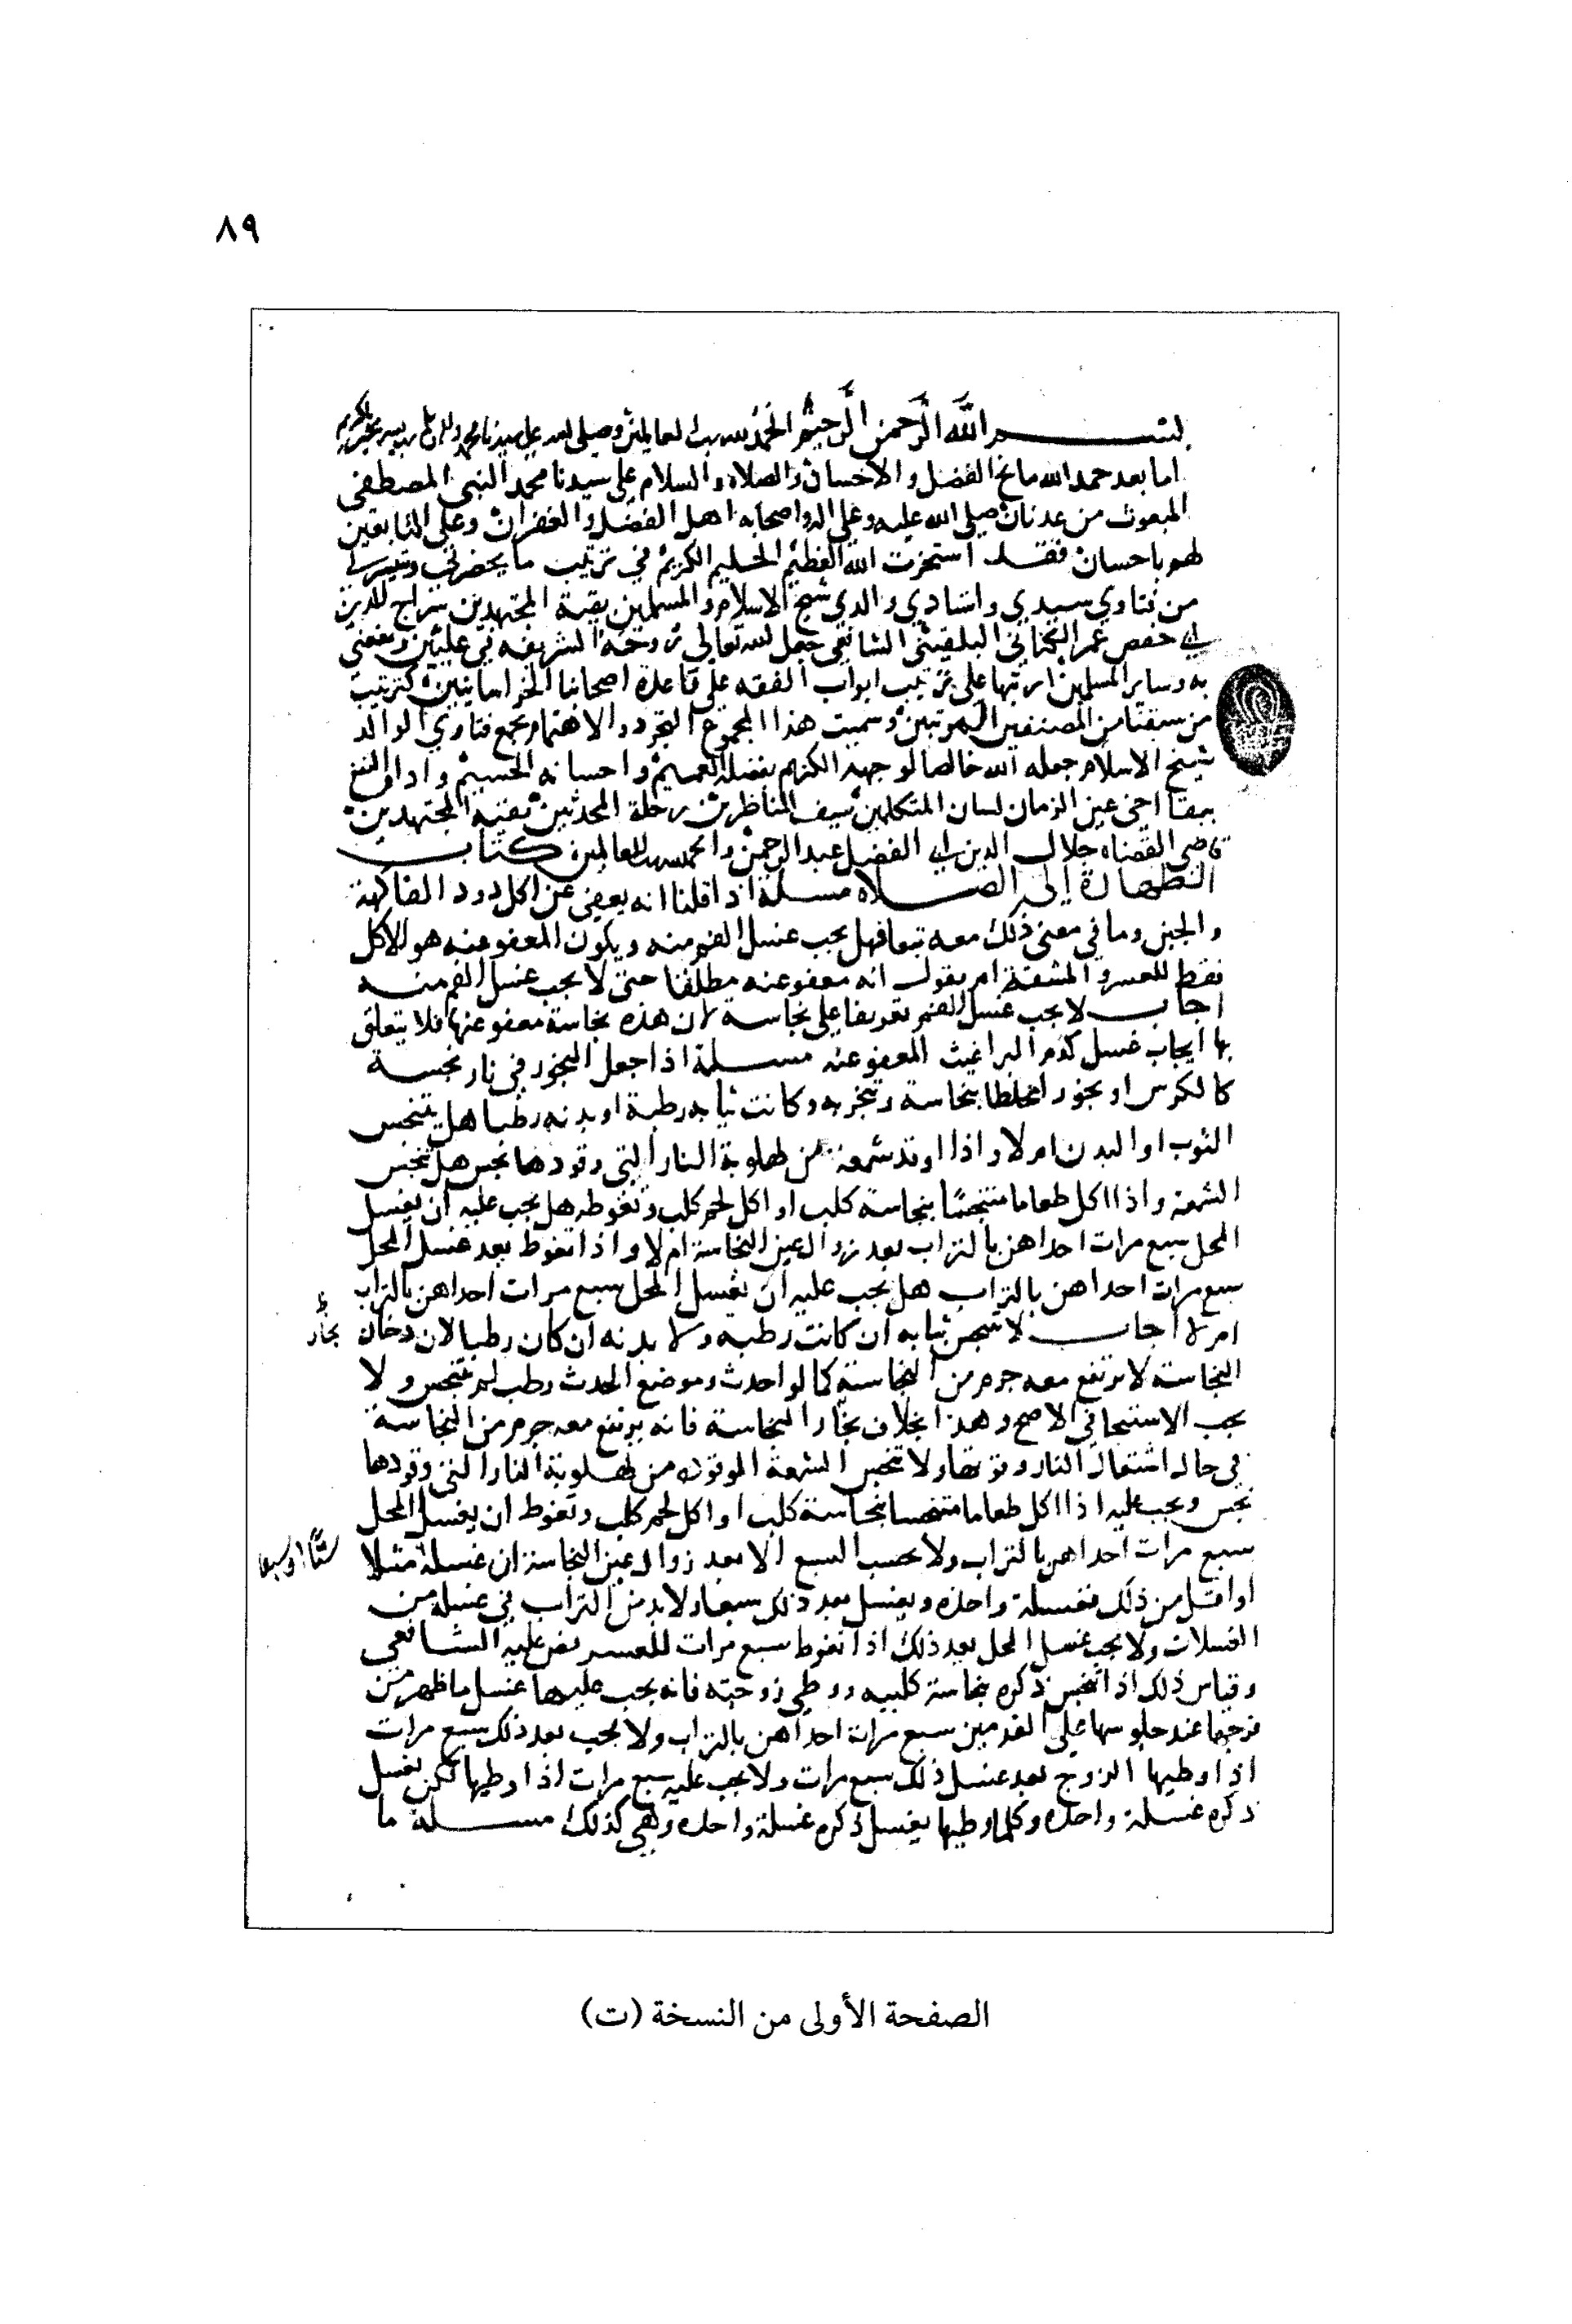 ٨٩
بسم الله الرحمن الرحيم الحمد لله رب العالمين وصلى الله على سيدنا محمد
اما بعد حمد الله مانح الفضل والاحسان والصلاة والسلام على سيدنا محمد النبي المصطفى
المبعوث من عدنان صلى الله عليه وعلى اله واصحابه اهل الفضل والغفران وعلى التابعين
لهم باحسان فقد استخرت الله العظيم الحليم الكريم في ترتيب ما يحضرني وتيسر لي
من فتاوي سيدي واستادي والدي شيخ الاسلام والمسلمين بقية المجتهدين سراج الدين
ابي حفص عمر الكناني البلقيني الشافعي جعل الله تعالى روحه الشريفه في عليين ونفعني
به وساير المسلمين ارتبها على ترتيب ابواب الفقه على قاعدة اصحابنا الخراسانيين كترتيب
من سبقنا من المصنفين المرتبين وسميت هذا المجموع التجرد والاهتمام بجمع فتاوي الوالد
شيخ الاسلام جعله الله خالصا لوجهه الكريم بفضله العميم واحسانه الجسيم وادام النفع
ببقا اخي عين الزمان لسان المتكلمين سيف المناظرين رحلة المحدثين بقية المجتهدين
قاضي القضاه جلال الدين ابي الفضل عبد الرحمن والحمد لله رب العالمين كتاب
الطهارة الى الصلاه مسلة اذا قلنا انه يعفى عن اكل دود الفاكهة
والجبن وما في معنى ذلك معه تبعا فهل يجب غسل الفم منه ويكون المعفو عنه هو الاكل
فقط للعسر والمشقة ام يقول انه معفو عنه مطلقا حتى لا يجب غسل الفم منه
اجاب لا يجب غسل الفم تفريعا على نجاسة لان هذه نجاسة معفو عنها فلا يتعلق
بها ايجاب غسل كدم البراغيث المعفو عنه مسلة اذا جعل البخور في نار نجسة
كالكرس او بخورا مختلطا بنجاسة وتبخر به وكانت ثيابه رطبة او بدنه رطبا هل يتنجس
الثوب او البدن ام لا واذا اوقد شمعة من طهلوبة النار التي وقودها نجس هل تنجس
الشمعة واذا اكل طعاما متنجسا بنجاسة كلب او اكل لحم كلب وتغوطه هل يجب عليه ان يغسل
المحل سبع مرات احداهن بالتراب بعد زوال عين النجاسة ام لا واذا تغوط بعد غسل المحل
سبع مرات احداهن بالتراب هل يجب عليه ان يغسل المحل سبع مرات احداهن بالتراب
ام لا اجاب لا تنجس ثيابه ان كانت رطبه ولا بدنه ان كان رطبا لان دخان
بخار
النجاسة لا يرتفع معه جرم من النجاسة كما لو احدث وموضع الحدث رطب لم يتنجس ولا
يجب الاستنجا في الاصح وهذا بخلاف بخار النجاسة فانه يرتفع معه جرم من النجاسة
في حال اشتعال النار وقوتها ولا تنجس الشمعة الموقوده من طهلوبة النار التي وقودها
نجس ويجب عليه اذا اكل طعاما متنجسا بنجاسة كلب او اكل لحم كلب وتغوط ان يغسل المحل
سبع مرات احداهن بالتراب ولا يحسب السبع الا بعد زوال عين النجاسة ان غسله مثلا
ستا او سبعا
او اقل من ذلك فغسلة واحده ويغسل بعد ذلك سبعا ولا بد من التراب في غسلة من
الغسلات ولا يجب غسل المحل بعد ذلك اذا تغوط سبع مرات للعسر نص عليه الشافعي
وقياس ذلك اذا تنجس ذكره بنجاسة كلبيه ووطي زوجته فانه يجب عليها غسل ما ظهر من
فرجها عند جلوسها على القدمين سبع مرات احداهن بالتراب ولا يجب بعد ذلك سبع مرات
اذا وطيها الزوج بعد غسل ذلك سبع مرات ولا يجب عليه سبع مرات اذا وطيها لكن يغسل
ذكره غسلة واحده وكلما وطيها يغسل ذكره غسلة واحده وهي كذلك مسلة ما
الصفحة الأولى من النسخة (ت)